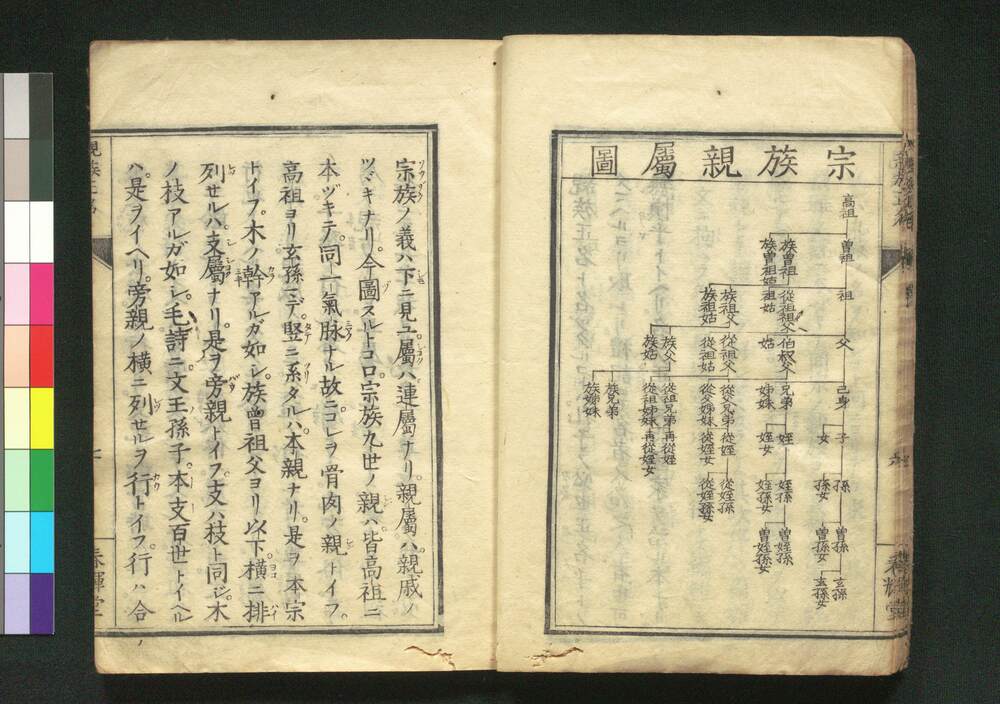 宗族親屬圖
高祖
曾祖
族曾祖
族曾祖姑
祖
從祖祖父
祖姑
族祖父
族祖姑
父
伯叔父
姑
從祖父
從祖姑
族父
族姑
己身
兄弟
姊妹
從父兄弟
從父姊妹
從祖兄弟
從祖姊妹
族兄弟
族姊妹
子
女
姪
姪女
從姪
從姪女
再從姪
再從姪女
孫
孫女
姪孫
姪孫女
從姪孫
從姪孫女
曾孫
曾孫女
曾姪孫
曾姪孫女
玄孫
玄孫女
宗族ノ義ハ下ニ見ユ屬ハ連屬ナリ親屬ハ親戚ノ
ツヾキナリ今圖スルトコロ宗族九世ノ親ハ皆高祖ニ
本ヅキテ同一氣脉ナル故ニコレヲ骨肉ノ親トイフ
高祖ヨリ玄孫ニデ竪ニ系タルハ本親ナリ是ヲ本宗
トイフ木ノ幹アルガ如シ族曾祖父ヨリ以下横ニ排
列セルハ支屬ナリ是ヲ旁親トイフ支ハ枝ト同ジ木
ノ枝アルガ如シ毛詩ニ文王孫子本支百世トイヘル
ハ是ヲイヘリ旁親ノ横ニ列セルヲ行トイフ行ハ合ノ
春暉堂